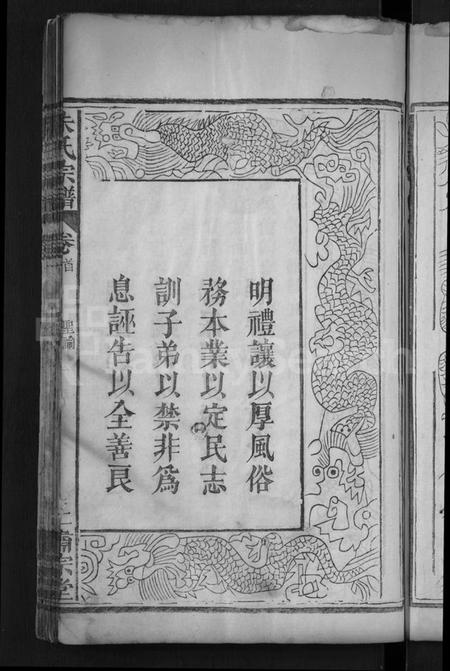 明禮讓以厚風俗
務本業以定民志
訓子弟以禁非爲
息誣告以全善良
朱氏宗譜
卷首
聖諭
FamilySearch